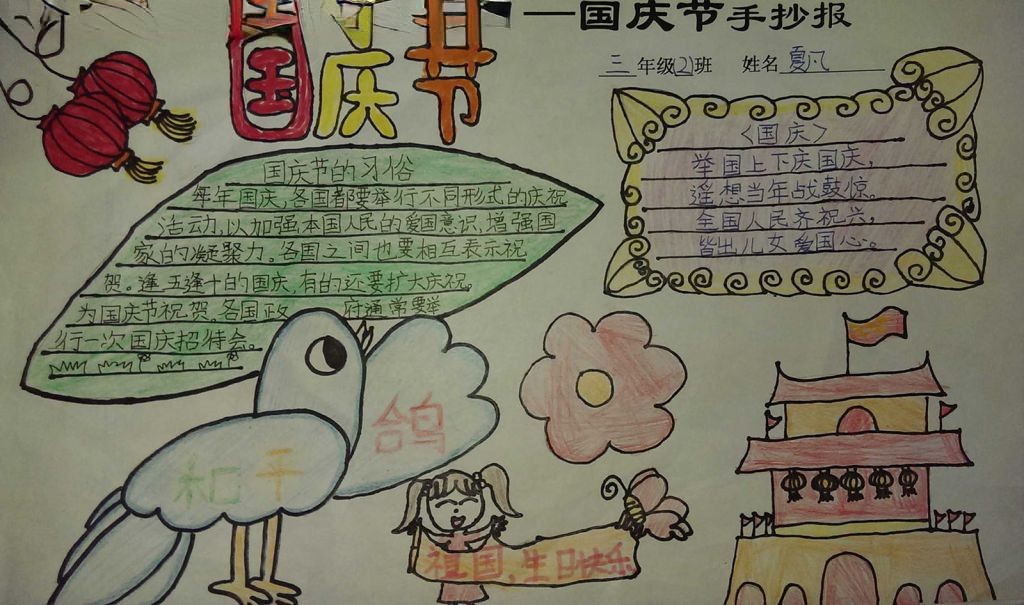 国庆节
——国庆节手抄报
三年级(2)班 姓名 夏凡
国庆节的习俗
每年国庆,各国都要举行不同形式的庆祝
活动,以加强本国人民的爱国意识,增强国
家的凝聚力。各国之间也要相互表示祝
贺。逢五逢十的国庆,有的还要扩大庆祝。
为国庆节祝贺,各国政府通常要举
行一次国庆招待会。
〈国庆〉
举国上下庆国庆,
遥想当年战鼓惊。
全国人民齐祝兴,
皆出儿女爱国心。
和平
鸽
祖国,生日快乐